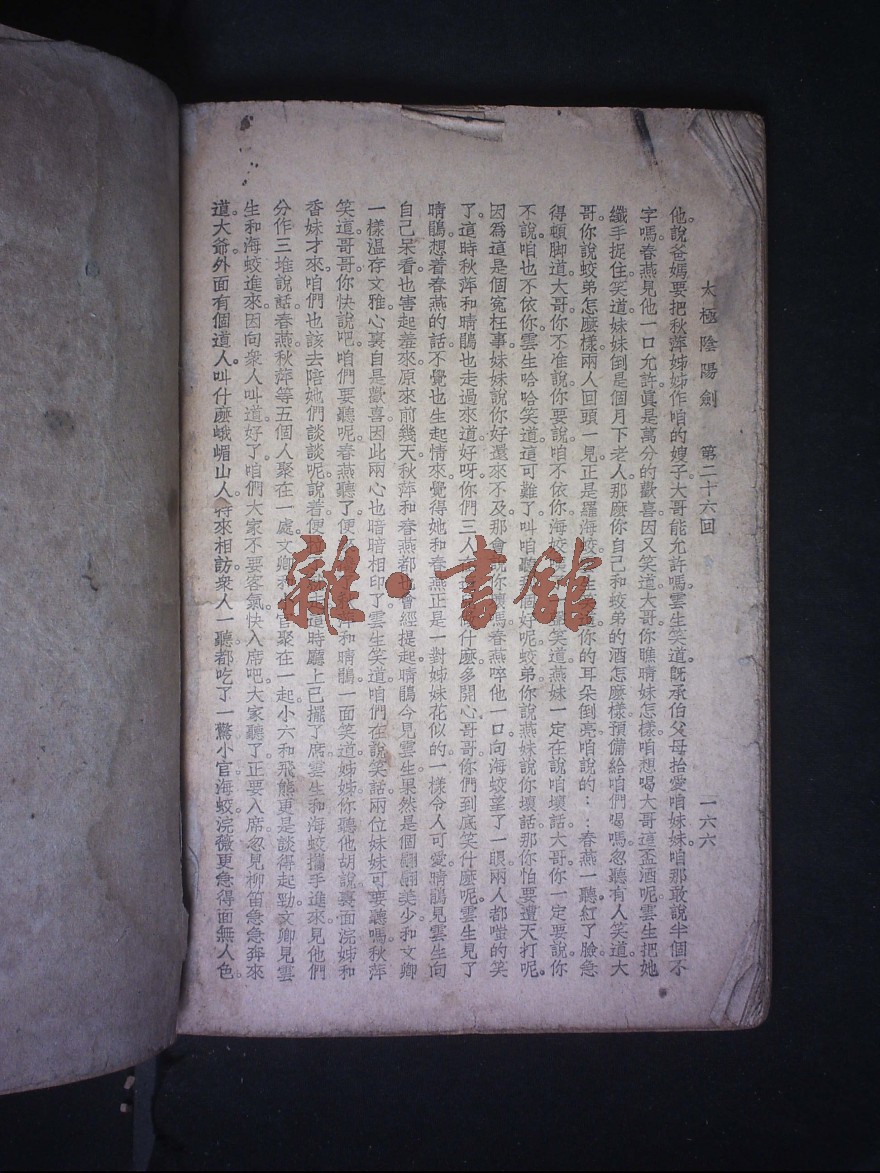 太極陰陽劍　第二十六回　一六六
他。說爸媽要把秋萍姊姊作咱的嫂子大哥能允許嗎雲生笑道。旣承伯父母抬愛咱妹妹。咱那敢說半個不
字嗎春燕見他一口允許眞是萬分的歡喜因又笑道大哥你瞧晴妹怎樣咱想喝大哥這盃酒呢雲生把她
纖手捉住笑道妹妹倒是個月下老人那麽你自己和蛟弟的酒怎麽樣預備給咱們喝嗎忽聽有人笑道大
哥。你說蛟弟怎麽樣。兩人回頭一見正是羅海蛟你的耳朵倒亮咱說的：：春燕一聽紅了臉急
得頓脚道大哥你不准說你要說咱不依你海蛟笑道燕妹一定在說咱壞話大哥你一定要說你
不說咱也不依你雲生哈哈笑道這可難了叫咱聽個好呢蛟弟你說燕妹說你壞話那你怕要遭天打呢。
因爲這是個寃枉事妹妹說你好還來不及那會說你嗎春燕啐他一口向海蛟望了一眼兩人都嗤的笑
了。這時秋萍和晴鵑也走過來道好呀你們三人什麽多開心哥哥你們到底笑什麽呢。雲生見了
晴鵑想着春燕的話不覺也生起情來覺得她和春燕正是一對姊妹花似的一樣令人可愛晴鵑見雲生向
自己呆看也害起羞來原來前幾天秋萍和春燕都也曾經提起晴鵑今見雲生果然是個翩翩美少。和文卿
一樣溫存文雅心裏自是歡喜因此兩心也暗暗相印了雲生笑道咱們在說笑話兩位妹妹可要聽嗎秋萍
笑道哥哥你快說吧咱們要聽呢春燕聽了便和晴鵑一面笑道姊姊你聽他胡說裏面浣姊和
香妹才來咱們也該去陪她們談談呢說着便這時廳上已擺了席雲生和海蛟攜手進來見他們
分作三堆說話春燕秋萍等五個人聚在一處文卿和官聚在一起小六和飛熊更是談得起勁文卿見雲
生和海蛟進來。因向衆人叫道好了咱們大家不要客氣快入席吧大家聽了正要入席忽見柳笛急急奔來
道大爺外面有個道人叫什麽峨嵋山人特來相訪衆人一聽都吃了一驚小官海蛟浣薇更急得面無人色。
雜・書館